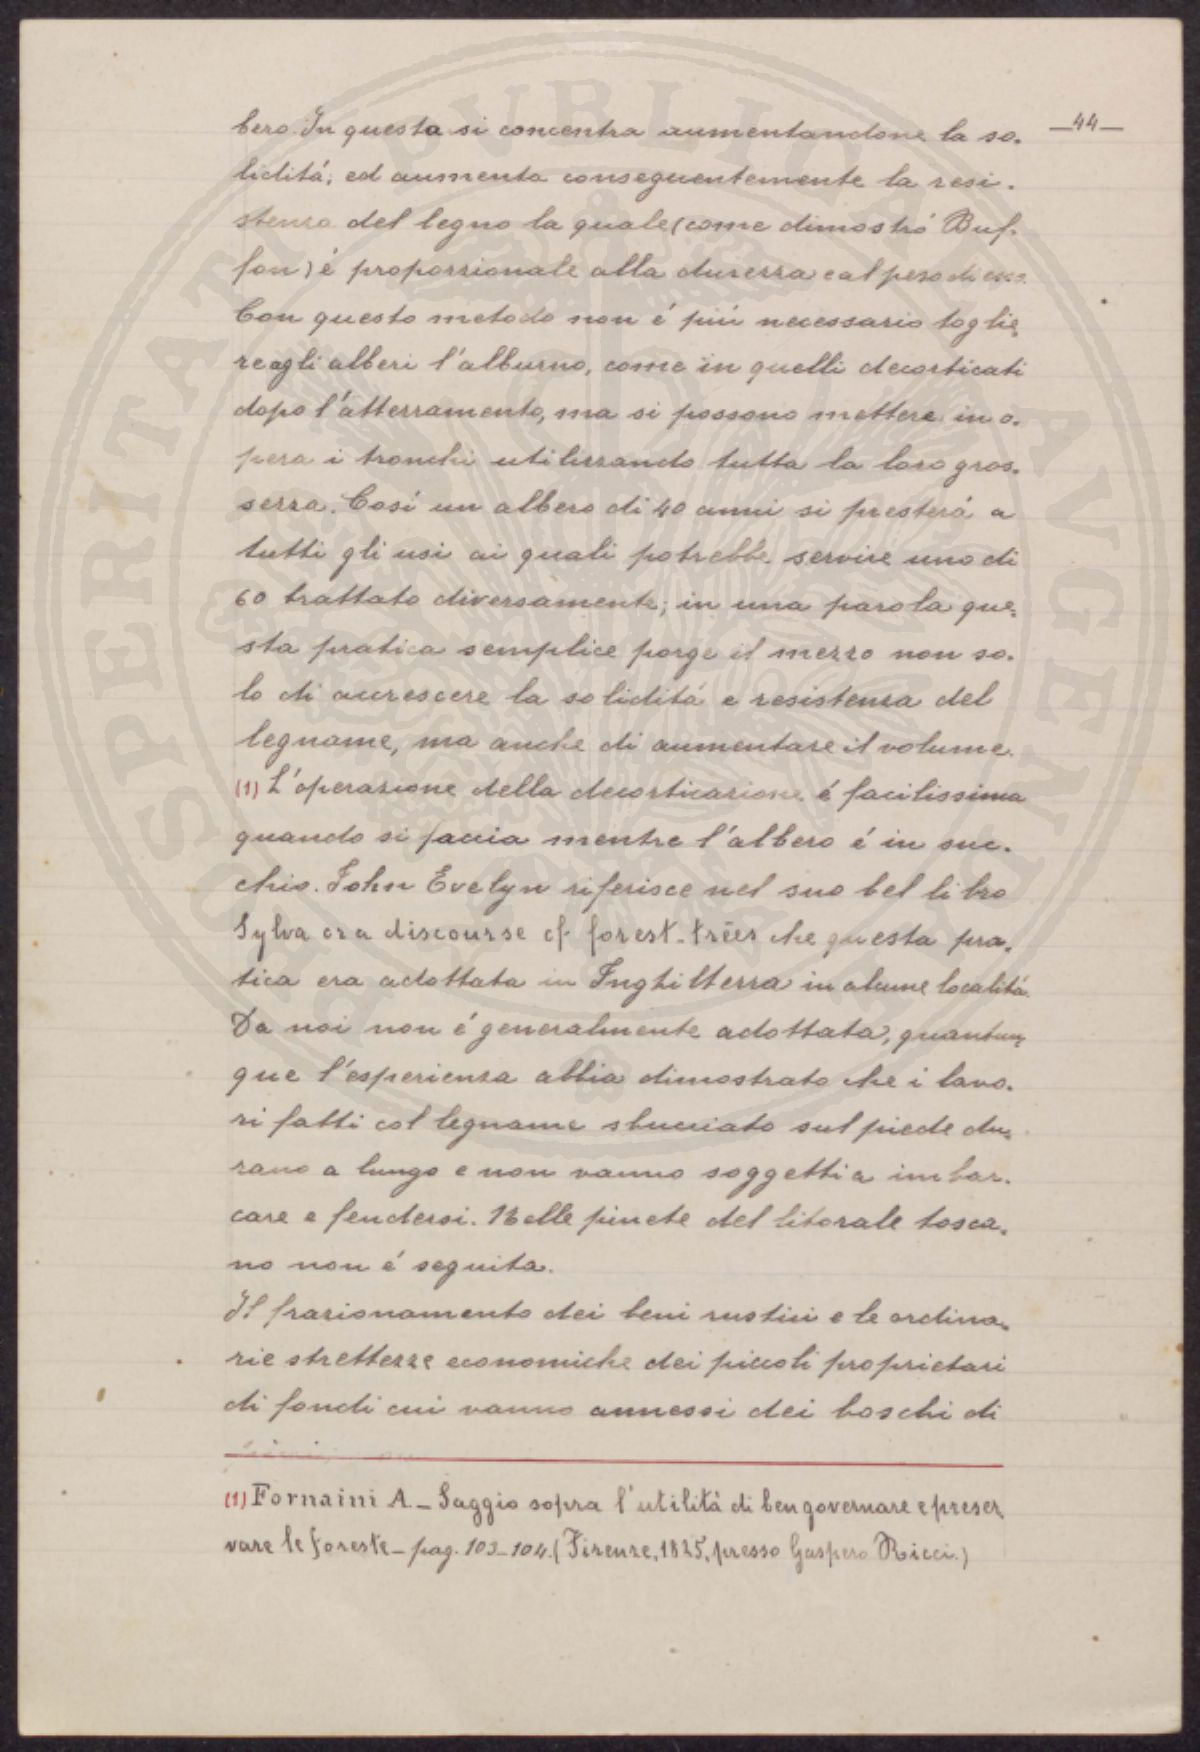 —44—
bero. In questa si concentra aumentandone la so-
liditá, ed aumenta conseguentemente la resi-
stenza del legno la quale (come dimostró Buf-
fon) é proporzionale alla durezza e al peso di esso.
Con questo metodo non é piú necessario toglie-
re agli alberi l'alburno, come in quelli decorticati
dopo l'atterramento, ma si possono mettere in o-
pera i tronchi utilizzando tutta la loro gros-
sezza. Cosí un albero di 40 anni si presterá a
tutti gli usi ai quali potrebbe servire uno di
60 trattato diversamente; in una parola que-
sta pratica semplice porge il mezzo non so-
lo di accrescere la soliditá e resistenza del
legname, ma anche di aumentare il volume.
(1) L'operazione della decorticazione é facilissima
quando si faccia mentre l'albero é in suc-
chio. John Evelyn riferisce nel suo bel libro
Sylva or a discourse of forest-trees che questa pra-
tica era adottata in Inghilterra in alcune localitá.
Da noi non é generalmente adottata, quantun-
que l'esperienza abbia dimostrato che i lavo-
ri fatti col legname sbucciato sul piede du-
rano a lungo e non vanno soggetti a imbar-
care e fendersi. Nelle pinete del litorale tosca-
no non é seguita.
Il frazionamento dei beni rustici e le ordina-
rie strettezze economiche dei piccoli proprietari
di fondi cui vanno annessi dei boschi di
(1) Fornaini A. — Saggio sopra l'utilitá di ben governare e preser-
vare le foreste — pag. 103-104. (Firenze, 1825, presso Gaspero Ricci.)
PROSPERITATI PVBLICAE AVGENDAE